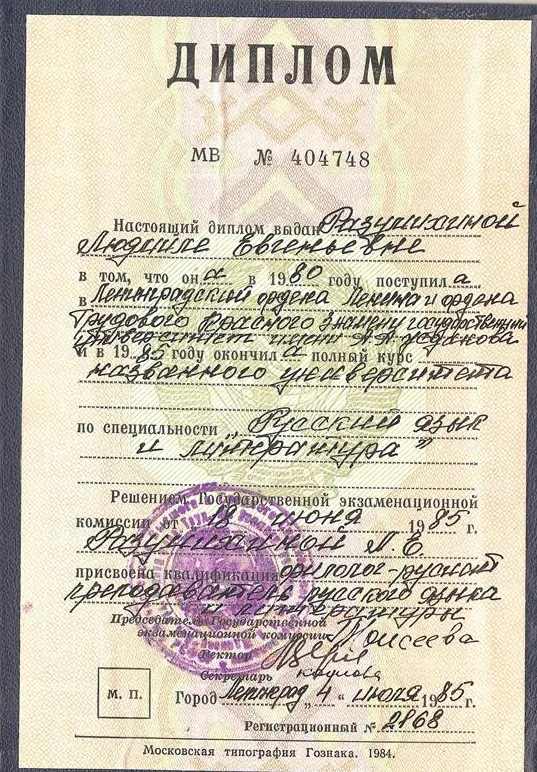 ДИПЛОМ
МВ № 404748
Настоящий диплом выдан Разумихиной
Людмиле Евгеньевне
в том, что она в 1980 году поступила
в Ленинградский ордена Ленина и ордена
Трудового Красного Знамени государственный
университет имени А.А. Жданова
и в 1985 году окончила полный курс
названного университета
по специальности „Русский язык
и литература”
Решением Государственной экзаменационной
комиссии от 18 июня 1985 г.
Разумихиной Л.Е.
присвоена квалификация филолог-русист
преподаватель русского языка
и литературы
Председатель Государственной
экзаменационной комиссии Моисеева
Ректор
Секретарь
М. П.
Город Ленинград „4“ июля 1985 г.
Регистрационный № 2168
Московская типография Гознака. 1984.